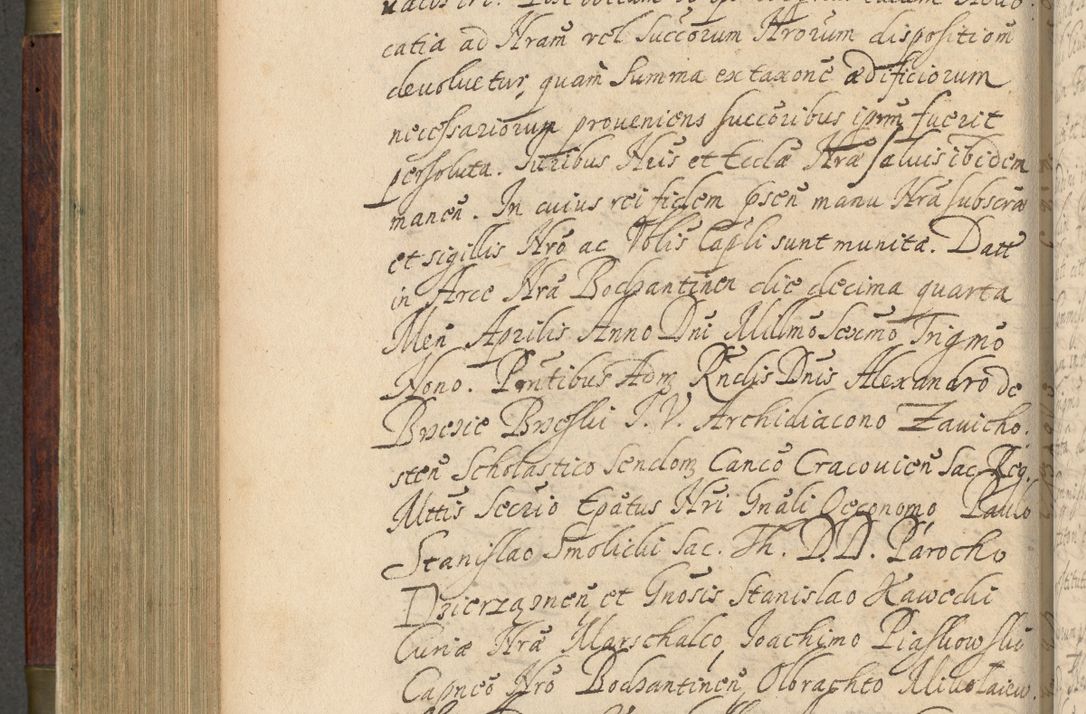 catia ad Nram vel Succorum Nrorum dispositiom
devolvetur, quam Summa ex taxone ædificiorum
necessariorum proveniens succoribus ipm̃ fuerit
persoluta. Iuribus Nris et Eccłæ Nræ salvis ibidem
manen̄. In cuius rei fidem p̄sen̄ manu Nrã subscræ
et sigillis Nrõ ac Vblis Cap̃li sunt munitæ. Datt̃
in Arce Nrã Bodzantinen die decima quarta
Men̄ Aprilis Anno Dni Millmo Sexmo Trigmo
Nono. Pn̄tibus Adm̃ Rn̄dis Dnis Alexandro de
Brzezie Brzeski I. V. Archidiacono Zavicho.
sten̄ Scholastico Sendom̃ Canco Cracovien̄ Sac. Reg.
Mttis Secrio Ep̃atus Nri Gn̄ali Oeconomo, Paulo
Stanislao Smolicki Sac. Th. D.D. Parocho
Dzierząznen̄ et Gnosis Stanislao Kawecki
Curiæ Nræ Marschalco, Joachimo Piaskowski
Capneo Nrõ Bodzantinen̄, Olbrachto Mikołaiew.